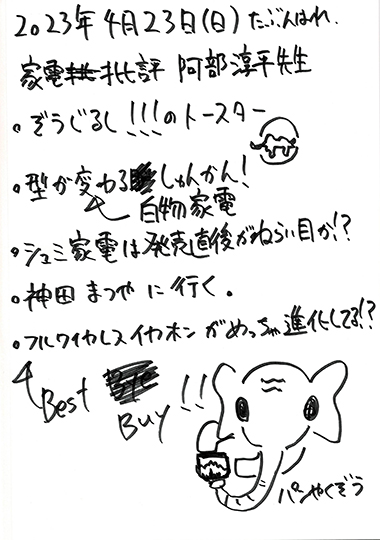 2023年4月23日(日)たぶんはれ.
家電批評 阿部淳平先生
・ぞうじるし!!!のトースター
・型が変わるしゅんかん!
白物家電
・シュミ家電は発売直後がねらい目か!?
・神田まつやに行く。
・フルワイヤレスイヤホンがめっちゃ進化してる!?
Best Buy!!
パンやくぞう